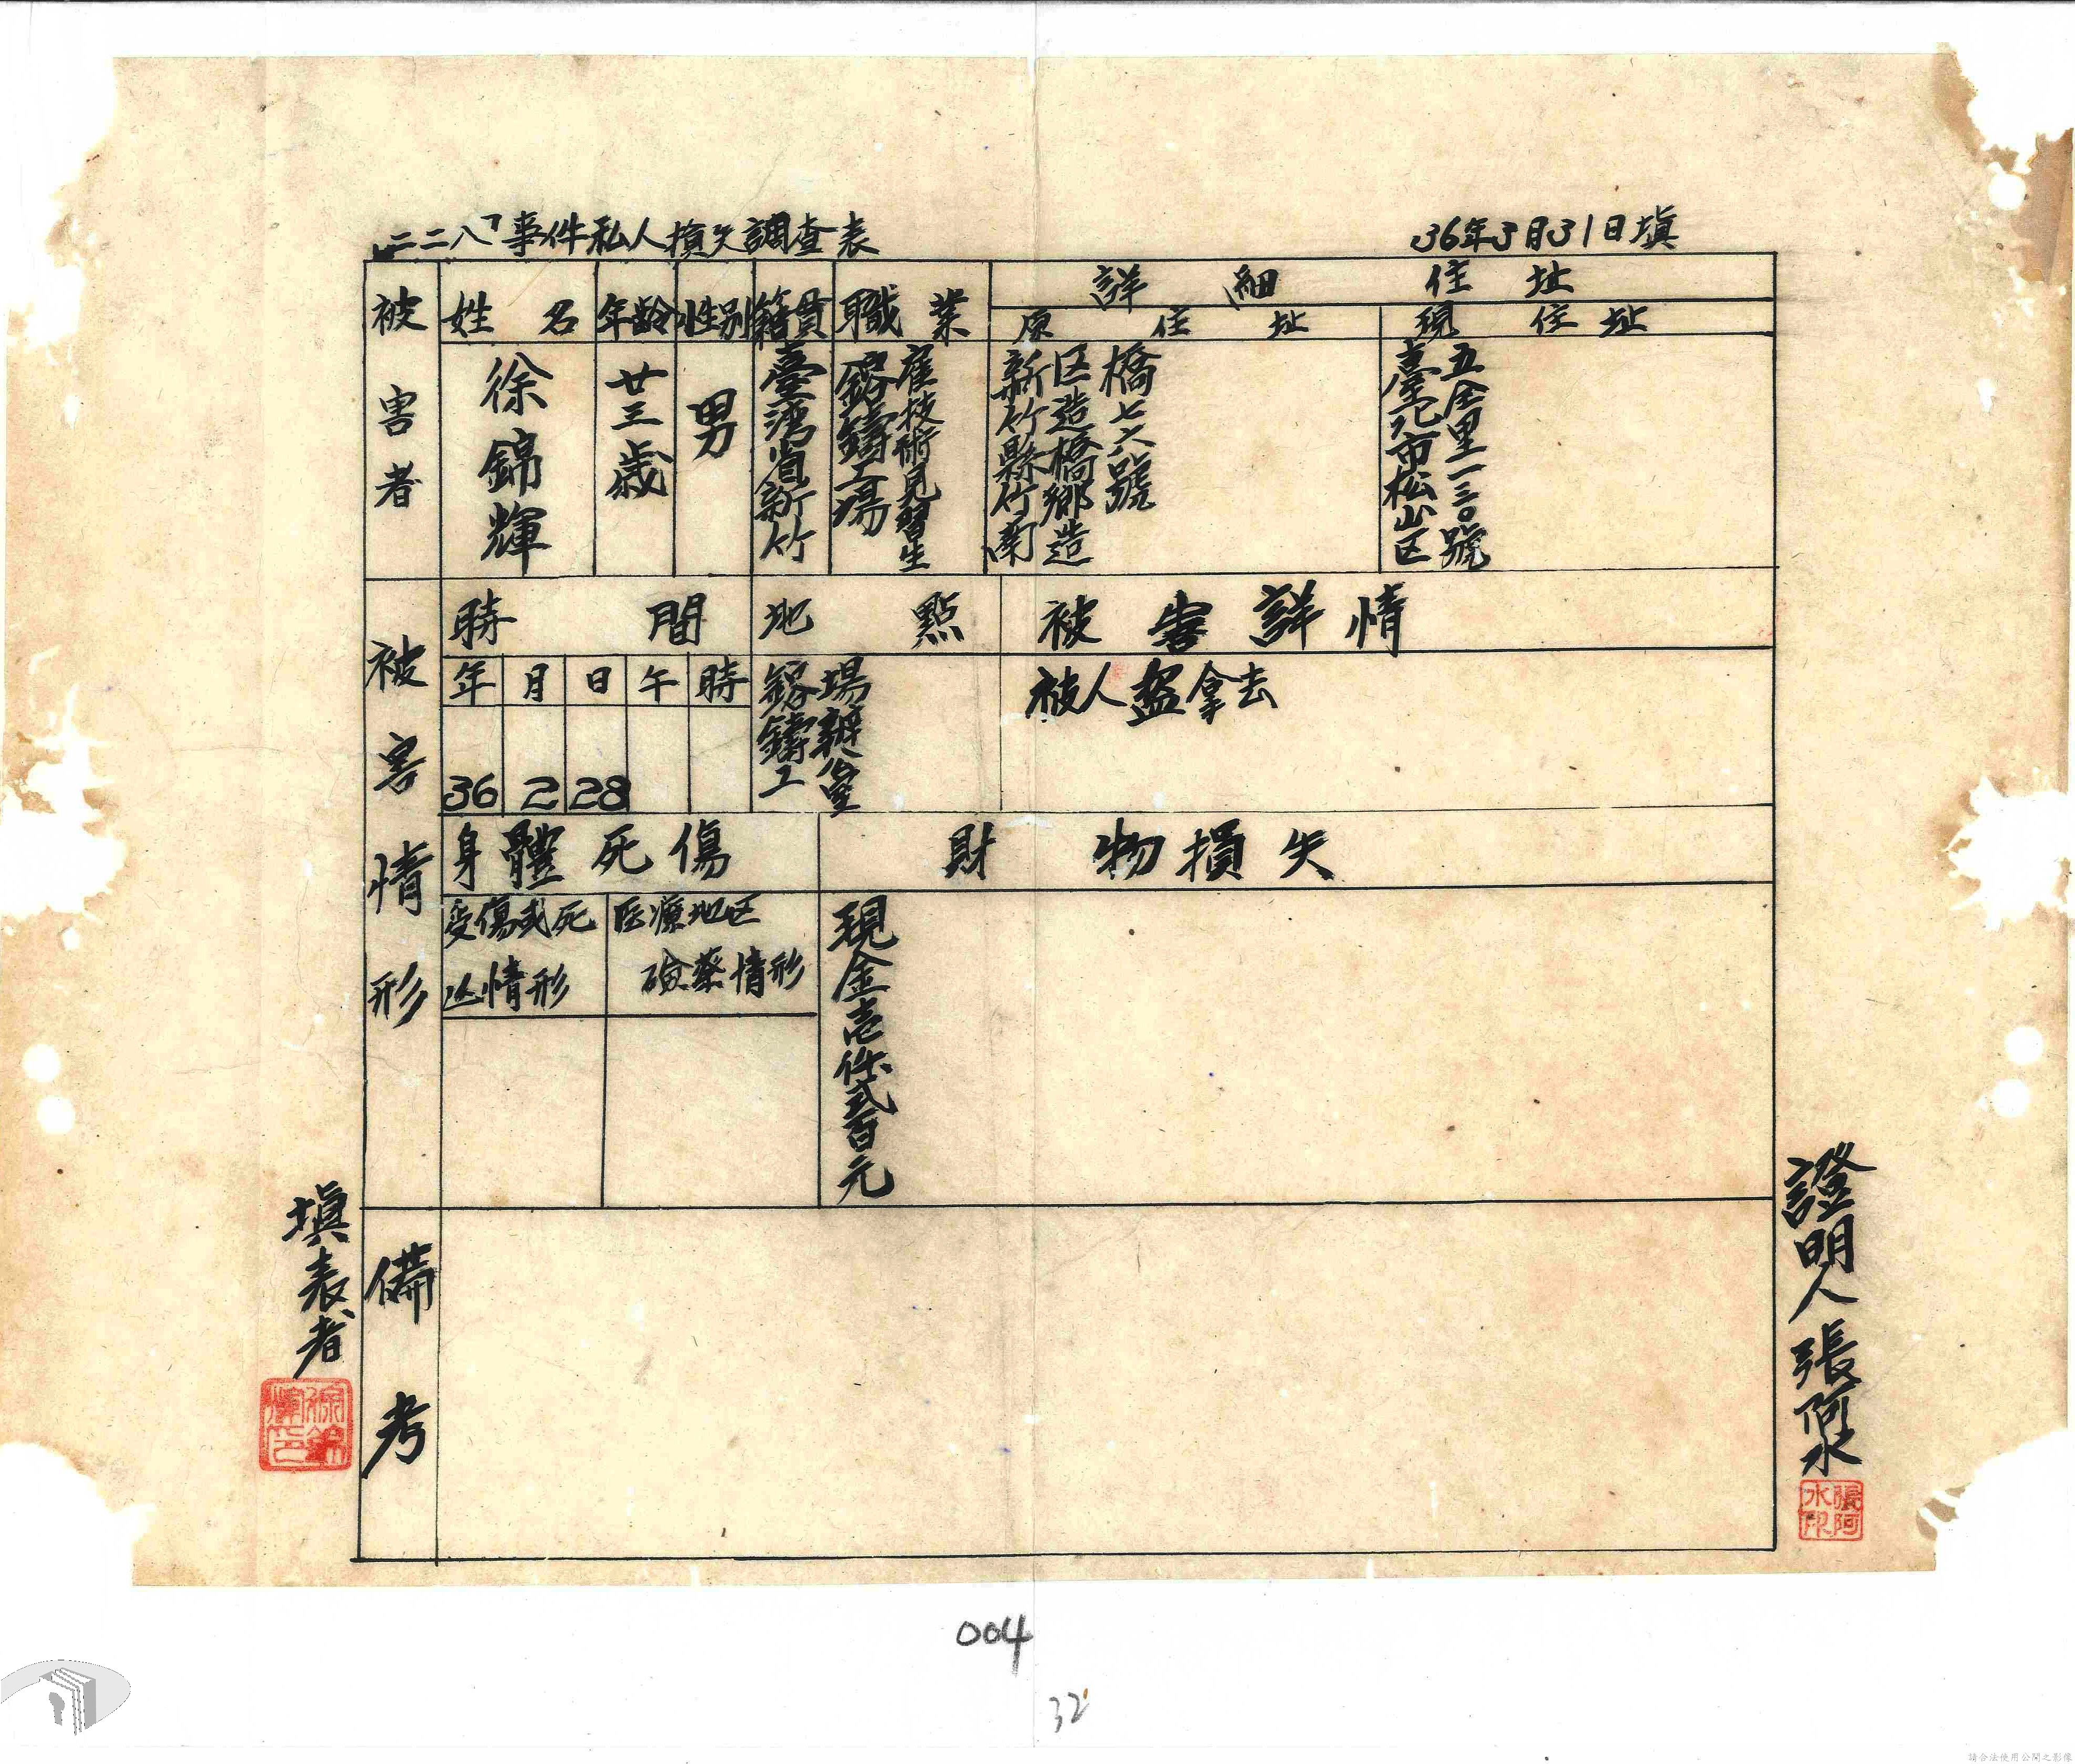 「二二八」事件私人損失調查表
36年3月31日填
被害者
姓名
年齡
性別
籍貫
職業
詳細住址
原住址
現住址
徐錦輝
廿三歲
男
臺灣省新竹
鎔鑄工場
雇技術見習生
新竹縣竹南
区造橋鄉造
橋七六號
臺北市松山区
五全里一三〇號
被害情形
時間
地點
被害詳情
年
月
日
午
時
36
2
28
鎔鑄工
場辦公室
被人盜拿去
身體死傷
財物損失
受傷或死
亡情形
医療地区
檢藥情形
現金壱仟弍百元
備考
填表者
徐錦輝印
證明人 張阿水
張阿水印
004
32
請合法使用公開之影像